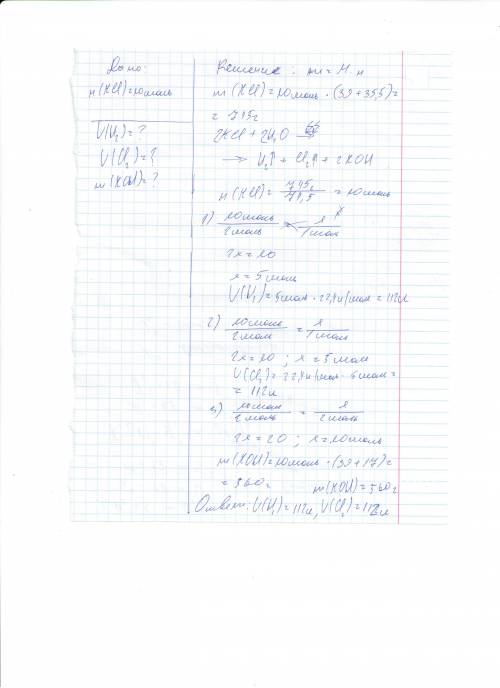 Дано:
n(KCl)=10моль
V(H₂)=?
V(Cl₂)=?
m(KOH)=?
Решение: m=M·n
m(KCl)=10моль·(39+35,5)=
=745г
2KCl+2H₂O
→ H₂↑+Cl₂↑+2KOH
n(KCl)=745г/74,5=10моль
1) 10моль/2моль = x/1моль
2x=10
x=5моль
V(H₂)=5моль·22,4л/моль=112л
2) 10моль/2моль = x/1моль
2x=10; x=5моль
V(Cl₂)=22,4л/моль·5моль=
=112л
3) 10моль/2моль = x/2моль
2x=20; x=10моль
m(KOH)=10моль·(39+17)=
=560г m(KOH)=560г
Ответ: V(H₂)=112л, V(Cl₂)=112л